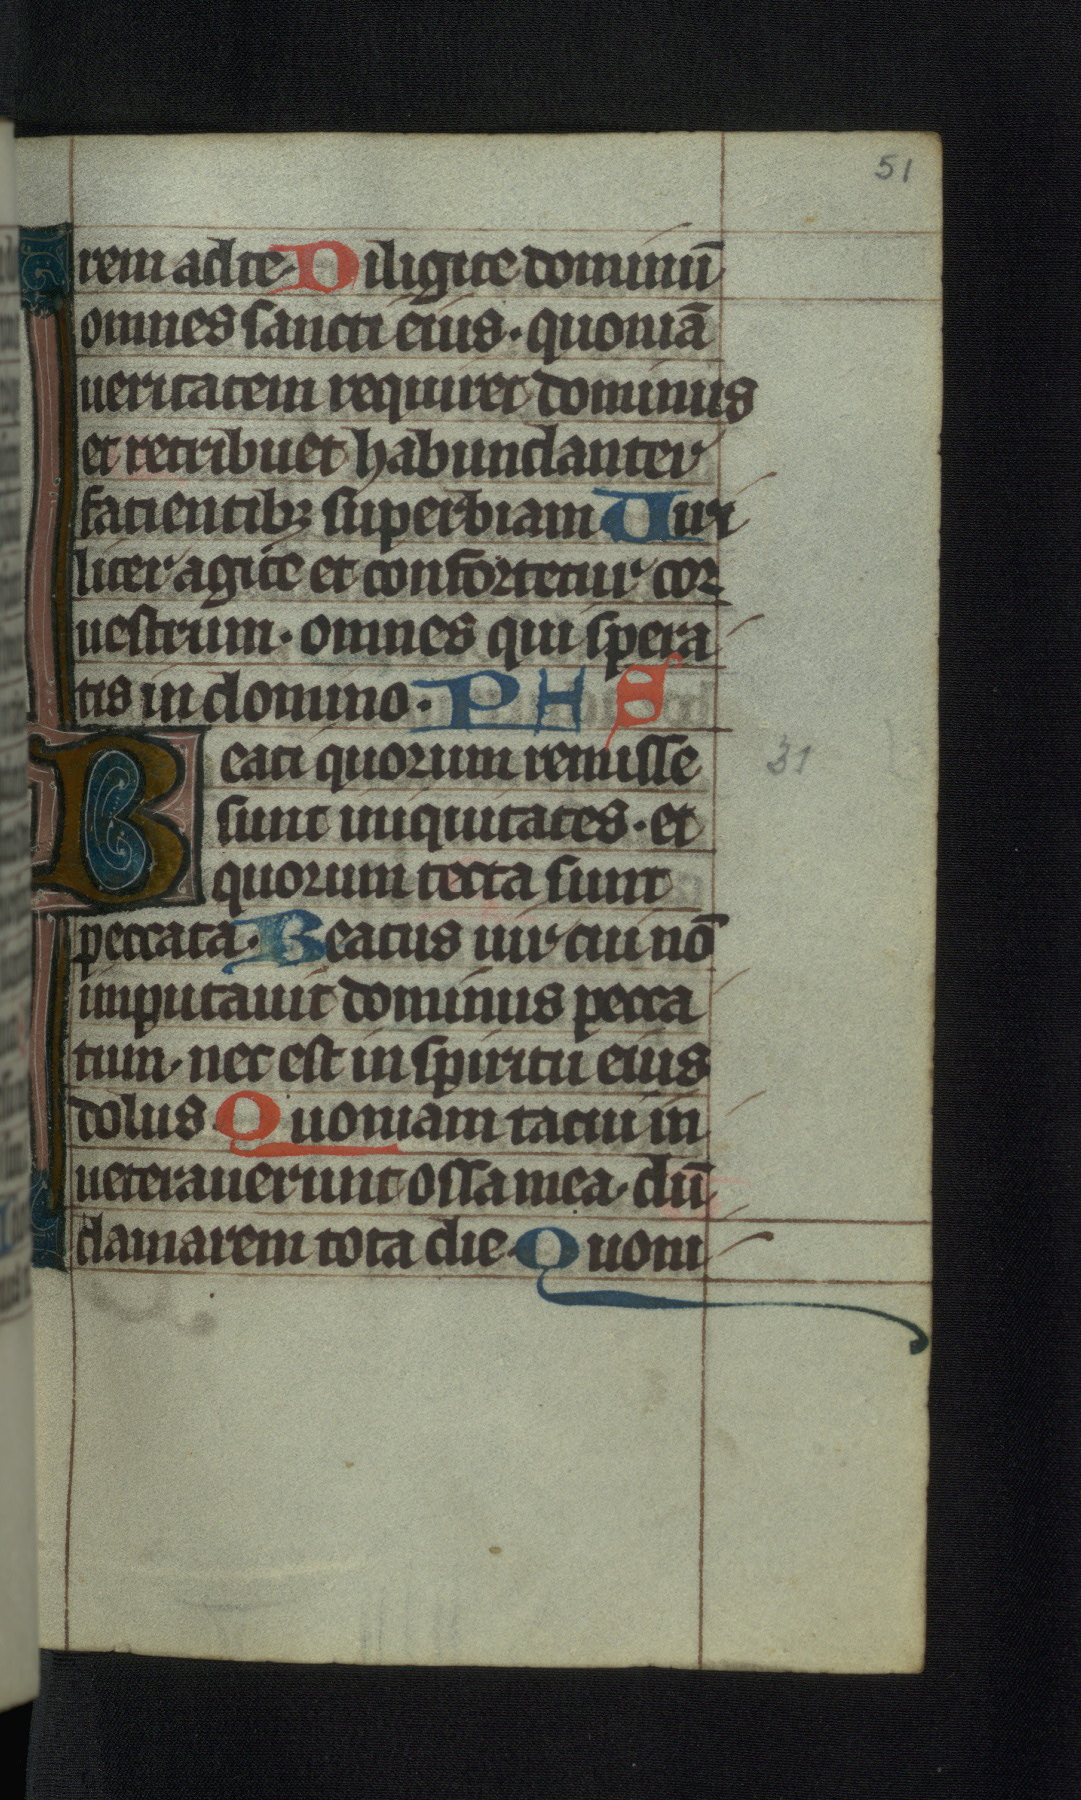 51
rem ad te. Diligite dominū
omnes sancti eius. quoniā
ueritatem requiret dominus
et retribuet habundanter
facientibꝫ superbiam Uiri
liter agite et confortetur cor
uestrum. omnes qui spera
tis in domino. PHS
Beati quorum remisse
31
sunt iniquitates. et
quorum tecta sunt
peccata. Beatus uir cui nō
imputauit dominus pecca
tum. nec est in spiritu eius
dolus Quoniam tacui in
ueterauerunt ossa mea. dū
clamarem tota die. Quoni